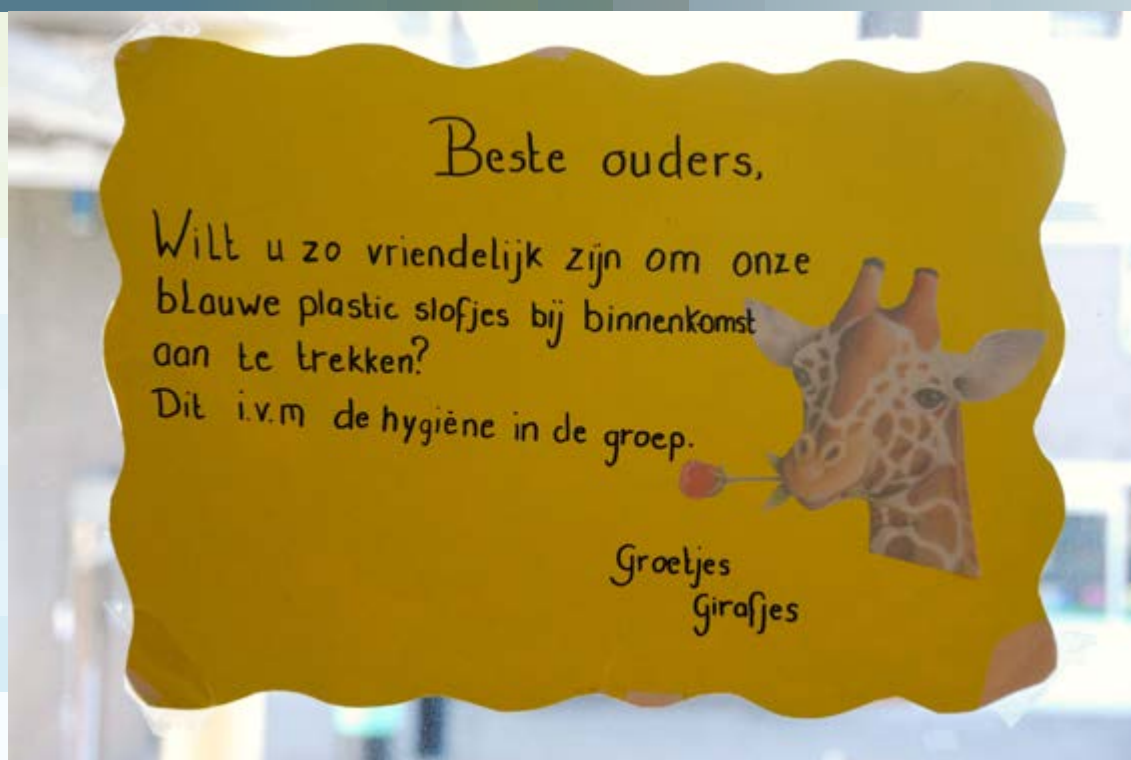 Beste ouders,
Wilt u zo vriendelijk zijn om onze
blauwe plastic slofjes bij binnenkomst
aan te trekken?
Dit i.v.m de hygiëne in de groep.
Groetjes
Girafjes